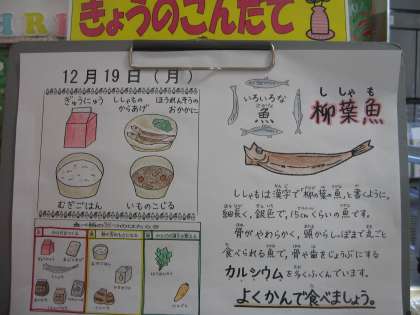 きょうのこんだて
12月19日(月)
ぎゅうにゅう
ししゃもの
からあげ
ほうれんそうの
おかかに
むぎごはん
いものこじる
いろいろな
魚
ししゃも
柳葉魚
ししゃもは漢字で「柳の葉の魚」と書くように、
細長く、銀色で、15cmくらいの魚です。
骨がやわらかく、頭からしっぽまで丸ごと
食べられる魚で、骨や歯をじょうぶにする
カルシウムを多くふくんでいます。
よくかんで食べましょう。